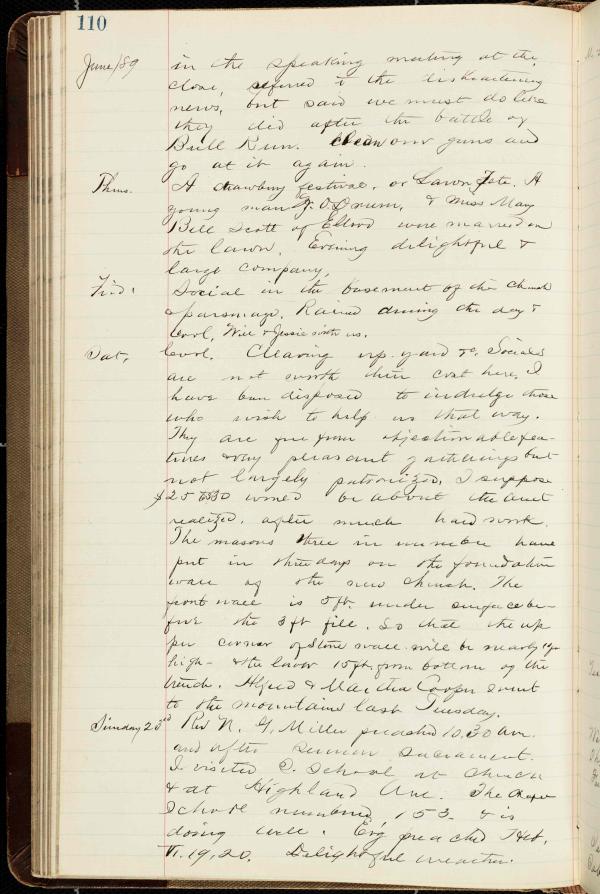 110
June/89 in the speaking meeting at the
close, referred to the disheartening
news, but said we must do like
they did after the battle of
Bull Run. Clean our guns and
go at it again.
Thurs. A strawberry festival, or Lawn Fete. A
young man O. Drum, & Miss May
Bell Scott of Eltod were married on
the lawn. Evening delightful &
large company,
Frid: Social in the basement of the church
& parsonage. Rained during the day &
Cool, Will & Jessie with us.
Sat, Cool. Clearing up yard &c. Socials
are not worth their cost here. I
have been disposed to indulge those
who wish to help us that way.
They are free from objectionable fea-
tures & very pleasant gatherings but
not largely patronized. I suppose
$25 to $30 would be about the amt
realized, after much hard work.
The masons three in number have
put in three days on the foundation
wall of the new church. The
front wall is 5 ft. under surface be-
fore the 3 ft fill. So that the up
per corner of stone wall will be nearly
high - & the lower 15 ft. from bottom of the
trench. Alfred & Martha Cooper went
to the mountains last Tuesday.
Sunday 23rd Rev N. G. Miller preached 10.30 am.
and after sermon sacrament.
I visited S. School at church
& at Highland Ave. The
School numbered 153 - & is
doing well. Evg preached Heb.
VI. 19, 20. Delightful weather.